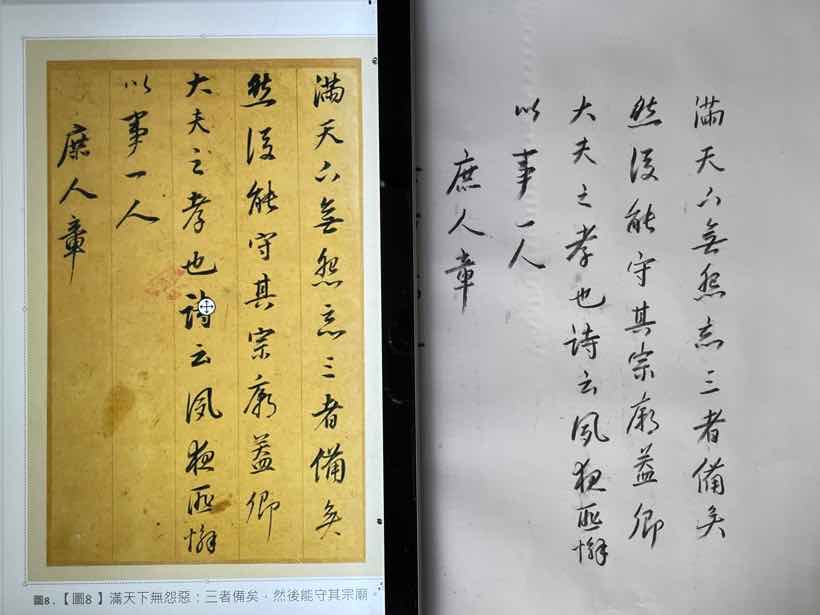 滿天下無怨惡三者備矣
然後能守其宗廟蓋卿
大夫之孝也詩云夙夜匪懈
以事一人
庶人章
圖8．【圖8 】滿天下無怨惡；三者備矣，然後能守其宗廟。
滿天下無怨惡三者備矣
然後能守其宗廟蓋卿
大夫之孝也詩云夙夜匪懈
以事一人
庶人章